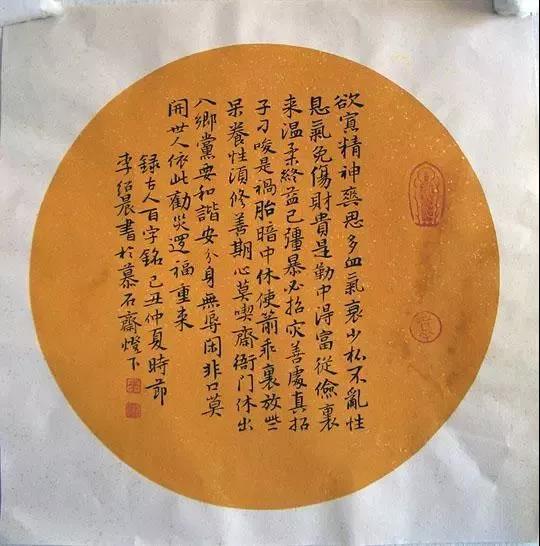 欲寡精神爽思多血氣衰少杯不亂性
忍氣免傷財貴是勤中得富從儉裏
来温柔終益己彊暴必招灾善處真君
子刁唆是禍胎暗中休使箭乖裏放些
呆養性須修善期心莫喫齋衙門休出
入鄉黨要和諧安分身無辱閑非口莫
開世人依此勸災退福重来
録古人百字銘己丑仲夏時節
李紹晨書於慕石齋燈下